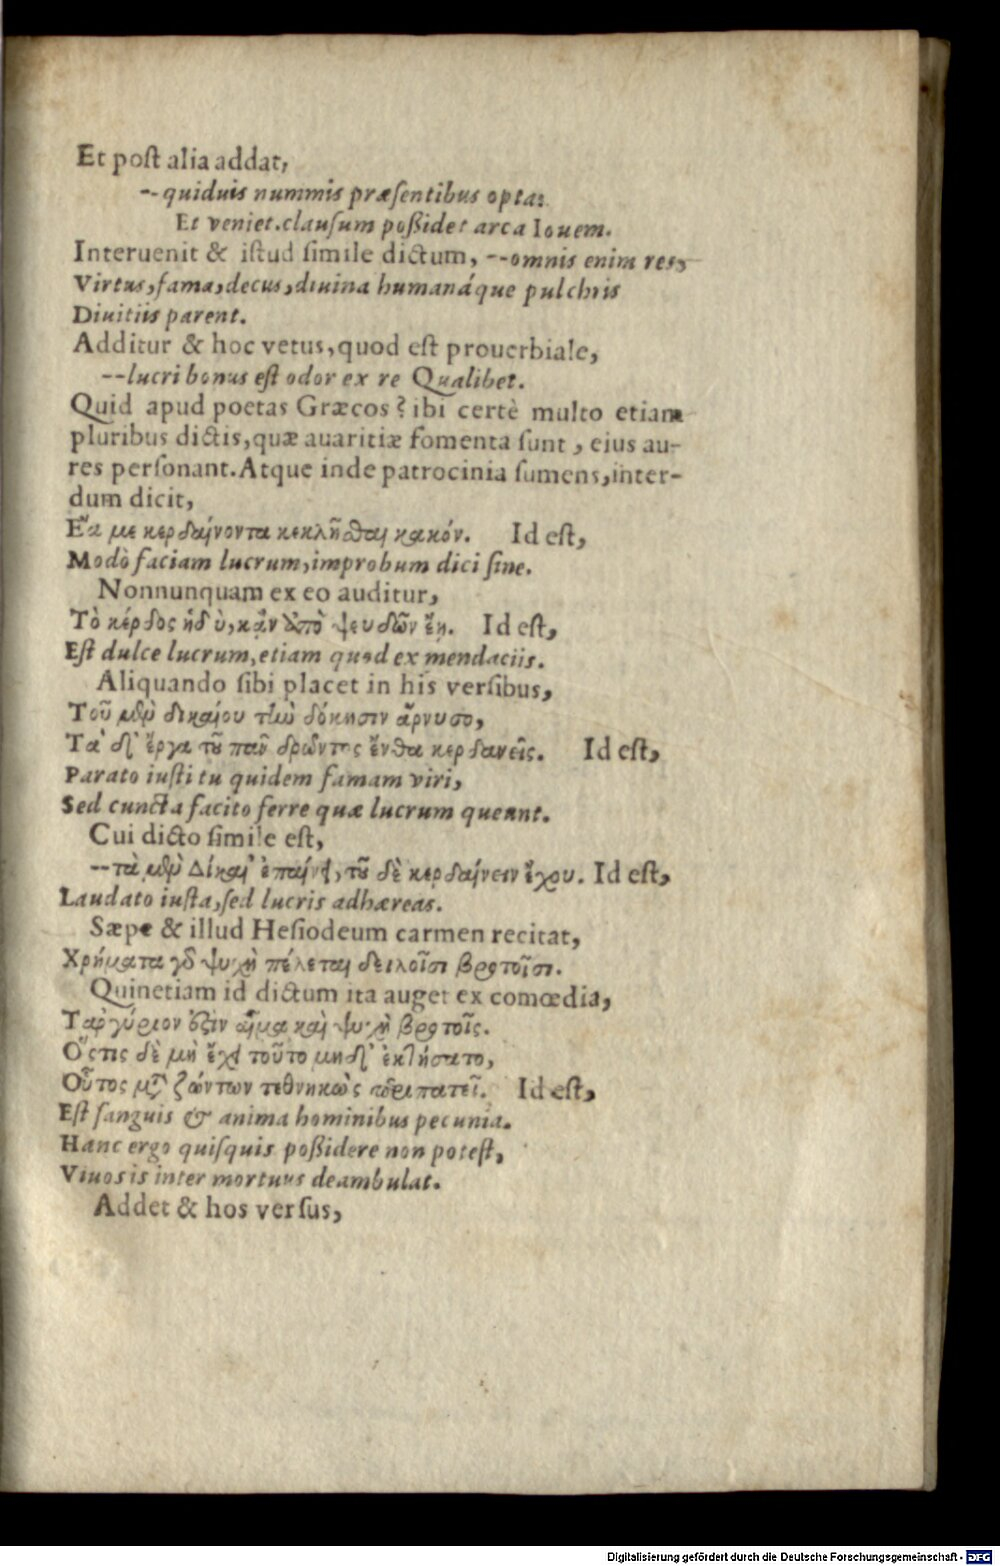 Et poſt alia addat,
--quiduis nummis præſentibus opta:
Et veniet.clauſum poßidet arca Iouem.
Interuenit & iſtud ſimile dictum, --omnis enim res,
Virtus,fama,decus,diuina humanáque pulchris
Diuitiis parent.
Additur & hoc vetus,quod eſt prouerbiale,
--lucri bonus eſt odor ex re Qualibet.
Quid apud poetas Græcos? ibi certè multo etiam
pluribus dictis,quæ auaritiæ fomenta ſunt, eius au-
res perſonant.Atque inde patrocinia ſumens,inter-
dum dicit,
Ἔα με κερδαίνοντα κεκλῆσθαι κακόν. Id eſt,
Modò faciam lucrum,improbum dici ſine.
Nonnunquam ex eo auditur,
Τὸ κέρδος ἡδὺ,κἂν ἀπὸ ψευδῶν ἔῃ. Id eſt,
Eſt dulce lucrum,etiam quod ex mendaciis.
Aliquando ſibi placet in his verſibus,
Τοῦ μὲν δικαίου τὴν δόκησιν ἄρνυσο,
Τὰ δ' ἔργα τοῦ πᾶν δρῶντος ἔνθα κερδανεῖς. Id eſt,
Parato iuſti tu quidem famam viri,
Sed cuncta facito ferre quæ lucrum queant.
Cui dicto ſimile eſt,
--τὰ μὲν Δίκαι' ἐπαίνει, τοῦ δὲ κερδαίνειν ἔχου. Id eſt,
Laudato iuſta,ſed lucris adhæreas.
Sæpe & illud Heſiodeum carmen recitat,
Χρήματα γὸ ψυχὴ πέλεται δειλοῖσι βροτοῖσι.
Quinetiam id dictum ita auget ex comœdia,
Τἀργύριον ὅζιν αἷμα καὶ ψυχὴ βροτοῖς.
Ὅςτις δὲ μὴ ἔχει τοῦτο μηδ' ἐκτήσατο,
Οὗτος μετὰ ζώντων τεθνηκὼς περιπατεῖ. Id eſt,
Eſt ſanguis & anima hominibus pecunia.
Hanc ergo quiſquis poßidere non poteſt,
Viuos is inter mortuus deambulat.
Addet & hos verſus,
Digitalisierung gefördert durch die Deutsche Forschungsgemeinschaft - DFG